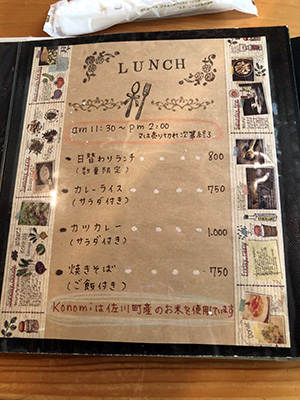 LUNCH
am 11:30～pm 2:00
又は売り切れ次第終了
日替わりランチ 800
(数量限定)
カレーライス 750
(サラダ付き)
カツカレー 1.000
(サラダ付き)
焼きそば 750
(ご飯付き)
Konomiは佐川町産のお米を使用しています